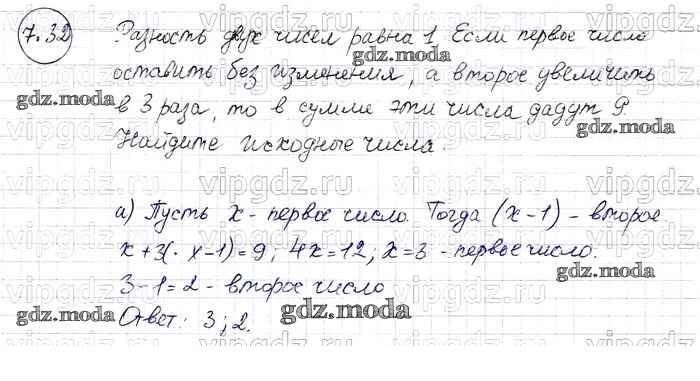 7.32 Разность двух чисел равна 1. Если первое число
оставить без изменения, а второе увеличить
в 3 раза, то в сумме эти числа дадут 9.
Найдите исходные числа.
а) Пусть х - первое число. Тогда (х-1) - второе
х+3(·х-1)=9; 4х=12; х=3 - первое число.
3-1=2 - второе число
Ответ: 3; 2.
gdz.moda
vipgdz.ru